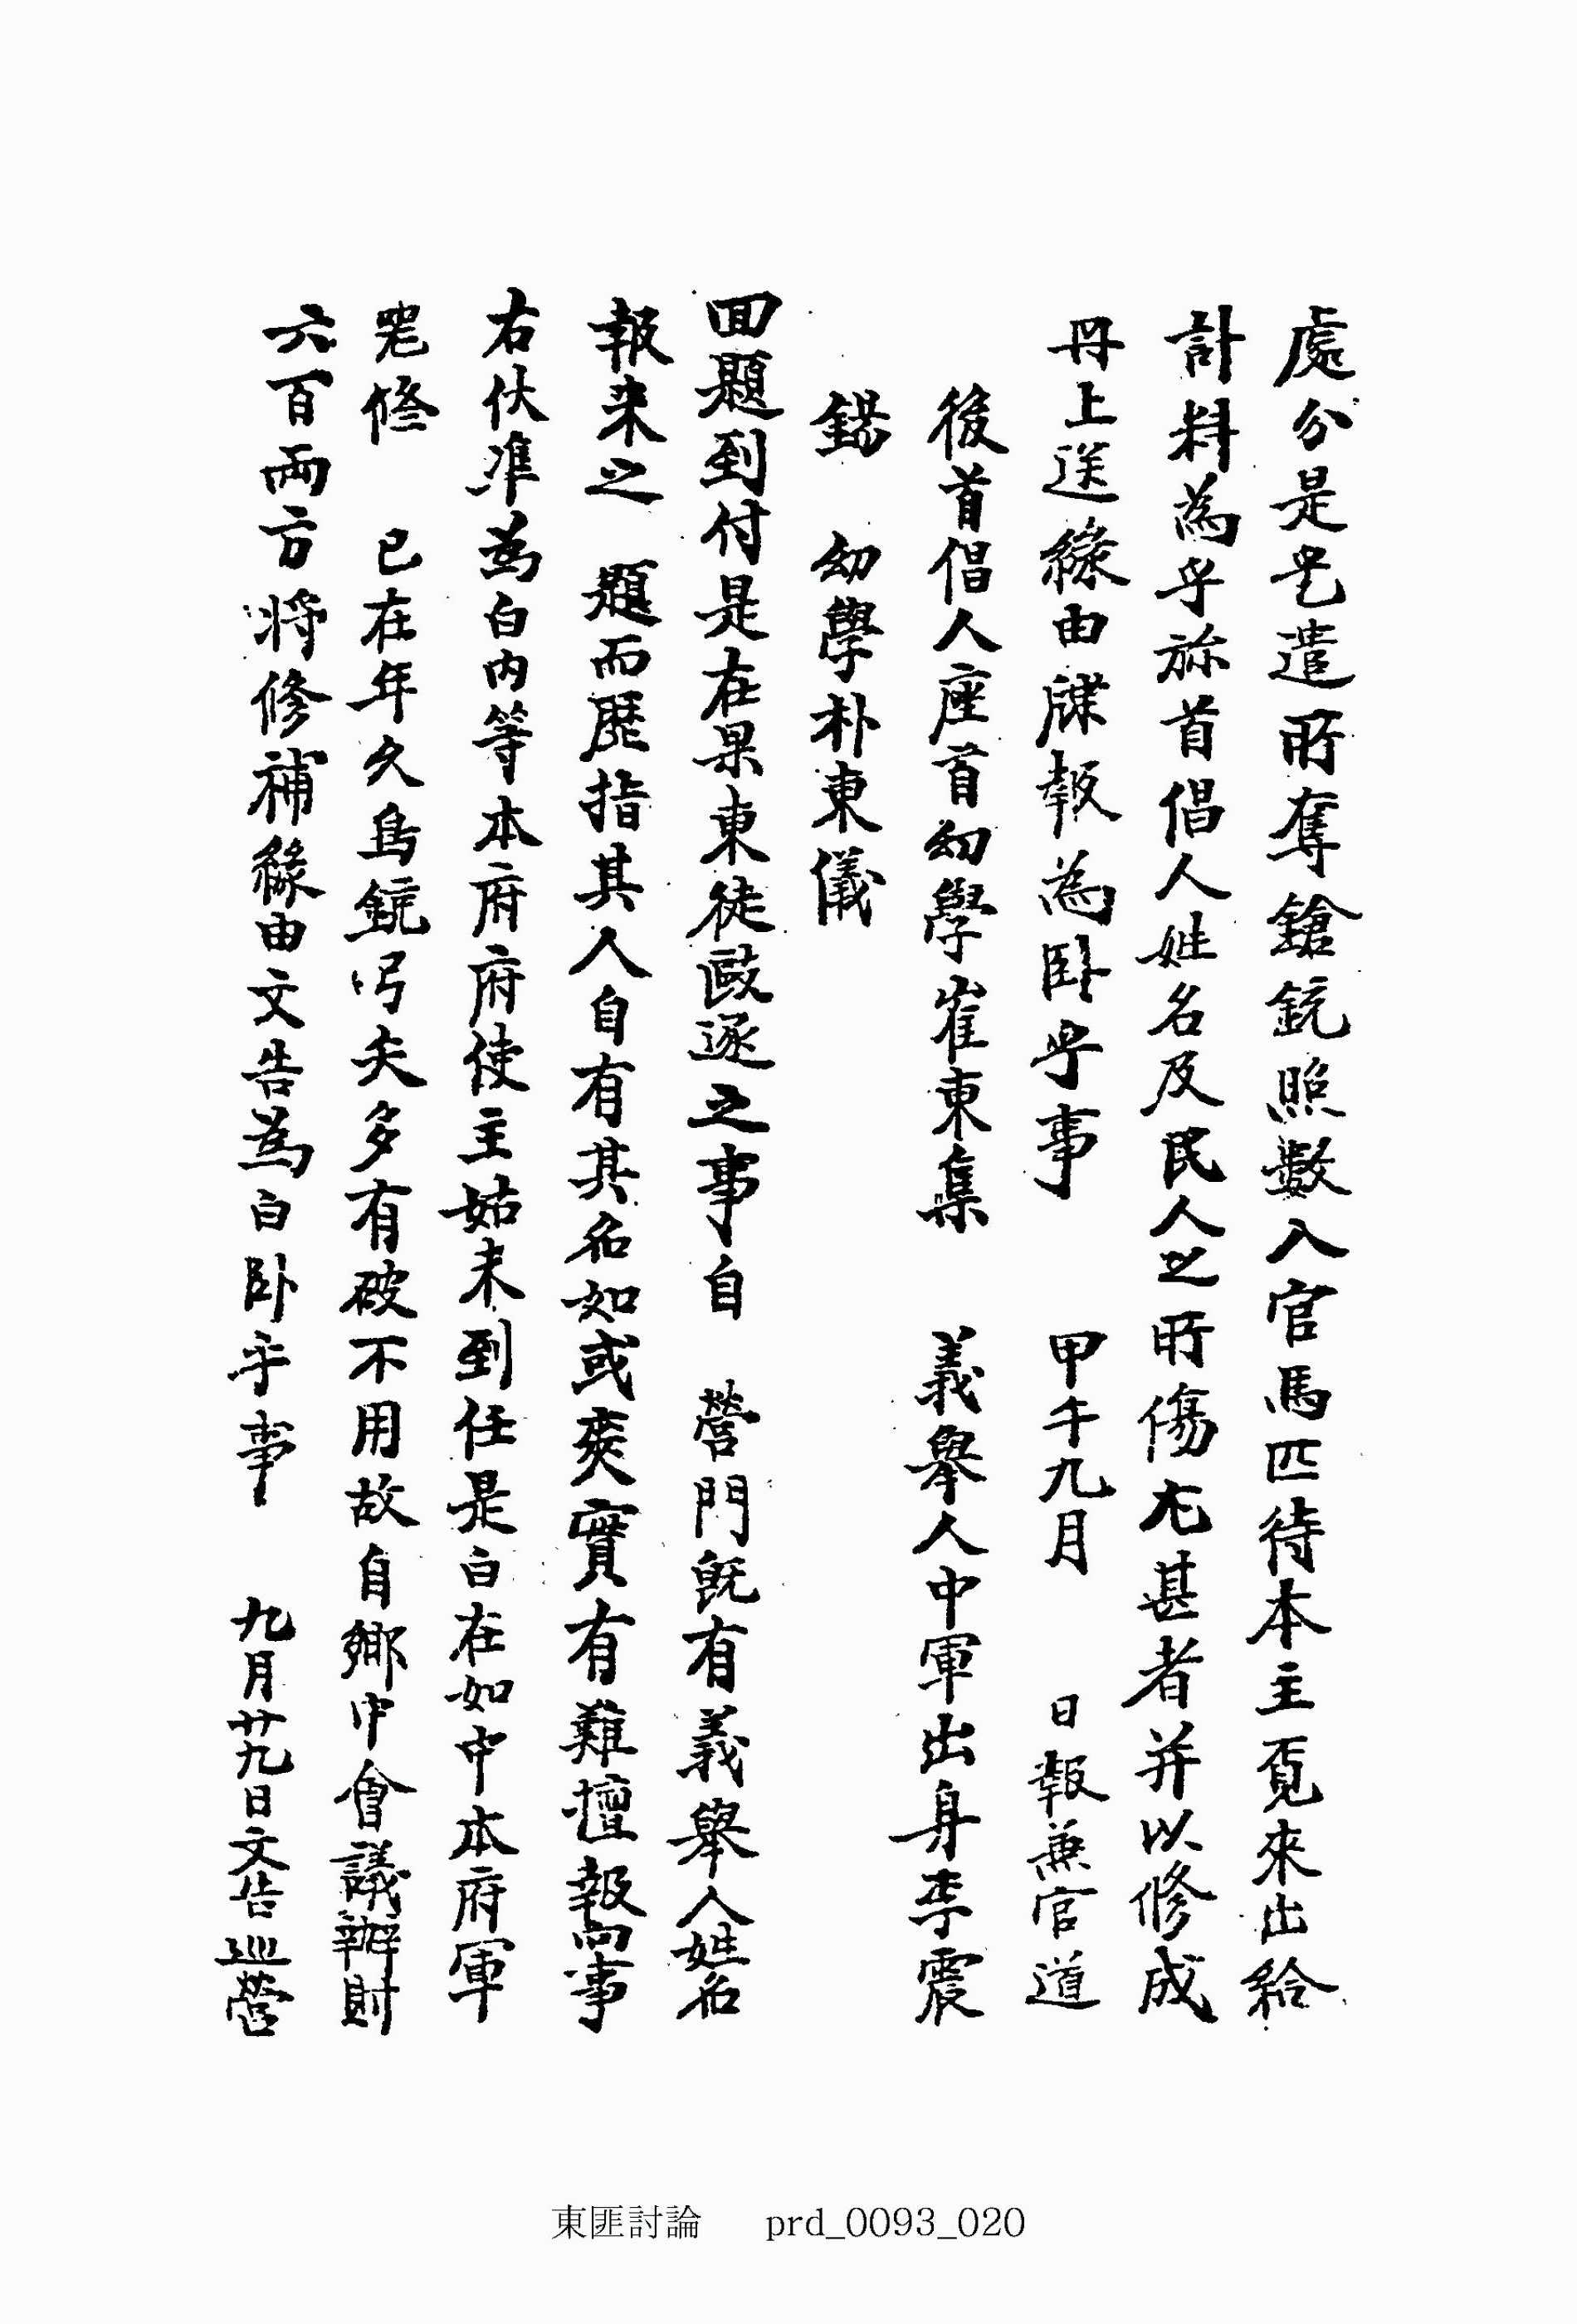 處分是乎遣所奪鎗銃照數入官馬匹待本主覓來出給
計料爲乎旀首倡人姓名及民人之所傷尤甚者并以修成
冊上送緣由牒報爲臥乎事 甲午九月 日報兼官道
後首倡人座首幼學崔東集 義擧人中軍出身李震
錫 幼學朴東儀
回題到付是在果東徒敺逐之事自 營門旣有義擧人姓名
報来之 題而歷指其人自有其名如或爽實有難擅報向事
右伏準爲白內等本府府使主姑未到任是白在如中本府軍
器修 已在年久鳥銃弓矢多有破不用故自鄕中會議辦財
六百兩方將修補緣由文告爲白臥乎事 九月廿九日文告巡營
東匪討論 prd_0093_020